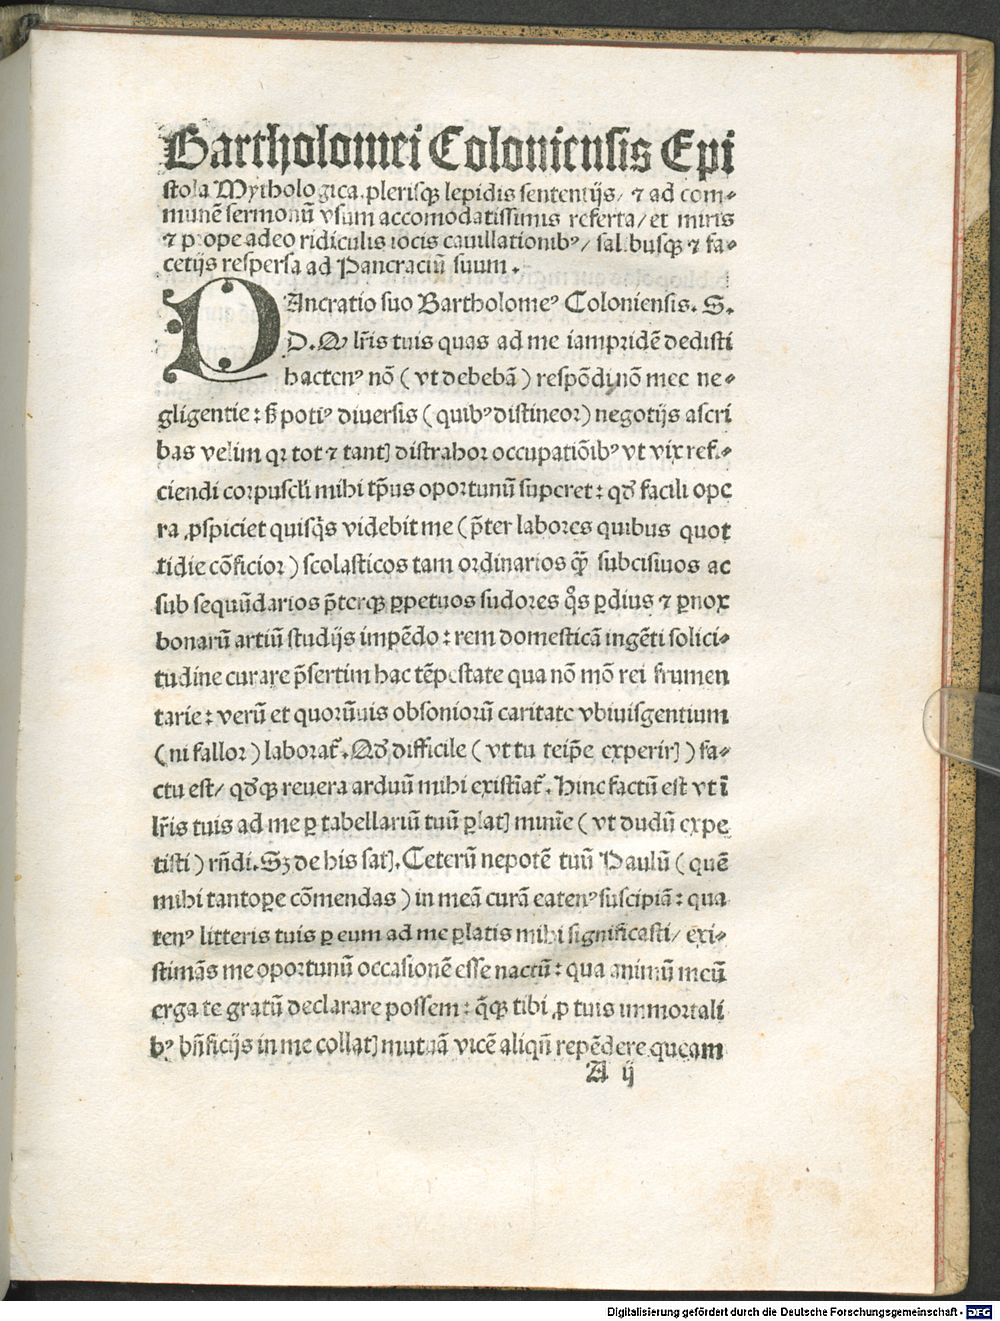 Bartholomei Coloniensis Epi
stola Mythologica. plerisqꝫ lepidis sententijs/ ⁊ ad com⸗
munē sermonū vsum accomodatissimis referta/ et miris
⁊ prope adeo ridiculis iocis cauillationibꝰ/ salibusqꝫ ⁊ fa⸗
cetijs respersa ad Pancraciū suum.
PAncratio suo Bartholomeꝰ Coloniensis. S.
D. Q lr̃is tuis quas ad me iampridē dedisti
hactenꝰ nō (vt debebā) respōdi nō mee ne⸗
gligentie: sꝫ potiꝰ diuersis (quibꝰ distineor) negotijs ascri
bas velim qꝛ tot ⁊ tantꝭ distrahor occupatiōibꝰ vt vix refi⸗
ciendi corpuscl̓i mihi tp̃us oportunū superet: qd̓ facili ope
ra ꝓspiciet quisq̃s videbit me (p̃ter labores quibus quot
tidie cōficior) scolasticos tam ordinarios q̃ꝫ subcisiuos ac
sub sequūdarios p̃terqꝫ ꝑpetuos sudores q̊s ꝑdius ⁊ ꝑnox
bonarū artiū studijs impēdo: rem domesticā ingēti solici⸗
tudine curare p̃sertim hac tēpestate qua nō mō rei frumen
tarie: verū et quorūuis obsoniorū caritate vbiuisgentium
(ni fallor) laborat᷑. Qd̓ difficile (vt tu teip̄e experirꝭ) fa⸗
ctu est/ qd̓qꝫ reuera arduū mihi existīat᷑. Hinc factū est vt ī
lr̃is tuis ad me ꝑ tabellariū tuū ꝑlatꝭ minīe (vt dudū expe
tisti) rn̄di. Sꝫ de his satꝭ. Ceterū nepotē tuū Paulū (quē
mihi tantopere cōmendas) in meā curā eatenꝰ suscipiā: qua
tenꝰ litteris tuis ꝑ eum ad me ꝑlatis mihi significasti/ exi⸗
stimās me oportunū occasionē esse nactū: qua animū meū
erga te gratū declarare possem: q̃qꝫ tibi ꝓ tuis immortali
bꝰ bn̄ficijs in me collatꝭ mutuā vicē aliqn̄ repēdere queam
A ij
Digitalisierung gefördert durch die Deutsche Forschungsgemeinschaft - DFG